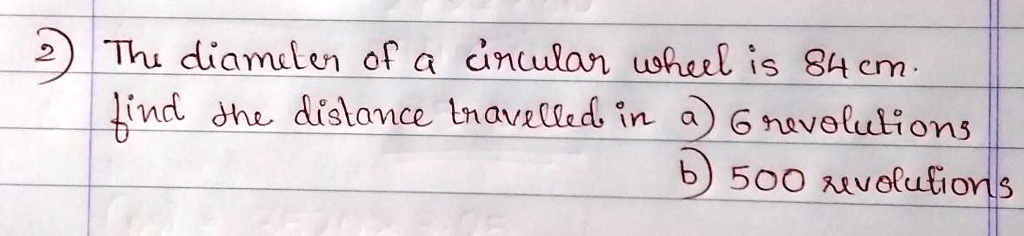 2) The diameter of a circular wheel is 84 cm.
find the distance travelled in a) 6 revolutions
b) 500 revolutions